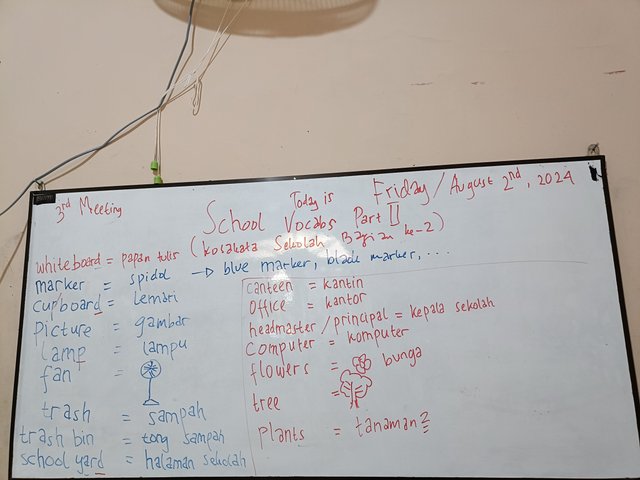 3rd Meeting
Today is Friday / August 2nd, 2024
School Vocabs Part II
(kosakata Sekolah Bagian ke-2)
whiteboard = papan tulis
marker = spidol → blue marker, black marker, ...
cupboard = lemari
picture = gambar
lamp = lampu
fan =
trash = sampah
trash bin = tong sampah
school yard = halaman sekolah
canteen = kantin
office = kantor
headmaster / principal = kepala sekolah
computer = komputer
flowers = bunga
tree =
plants = tanaman2